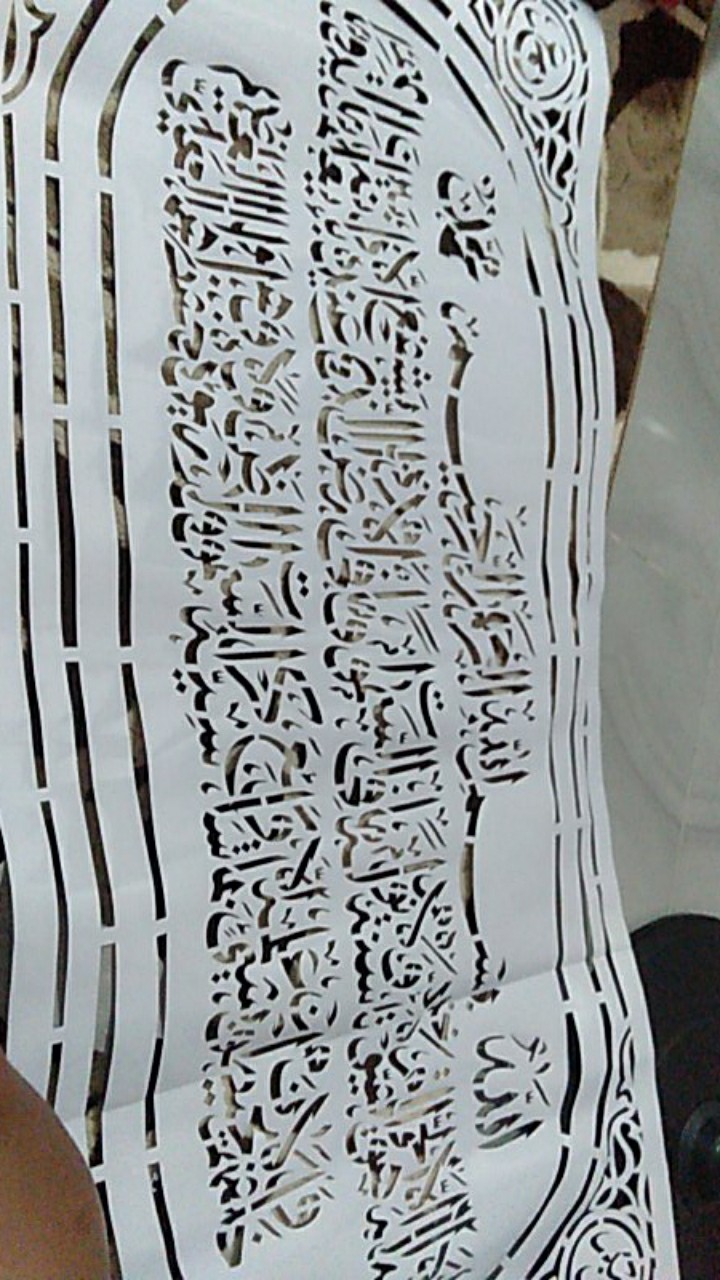 الله بسم الله الرحمن الرحيم محمد
الله لا إله إلا هو الحي القيوم لا تأخذه سنة ولا نوم له ما في السموات وما في الأرض من ذا الذي يشفع عنده إلا بإذنه يعلم ما بين أيديهم
وما خلفهم ولا يحيطون بشيء من علمه إلا بما شاء وسع كرسيه السموات والأرض ولا يؤده حفظهما وهو العلي العظيم